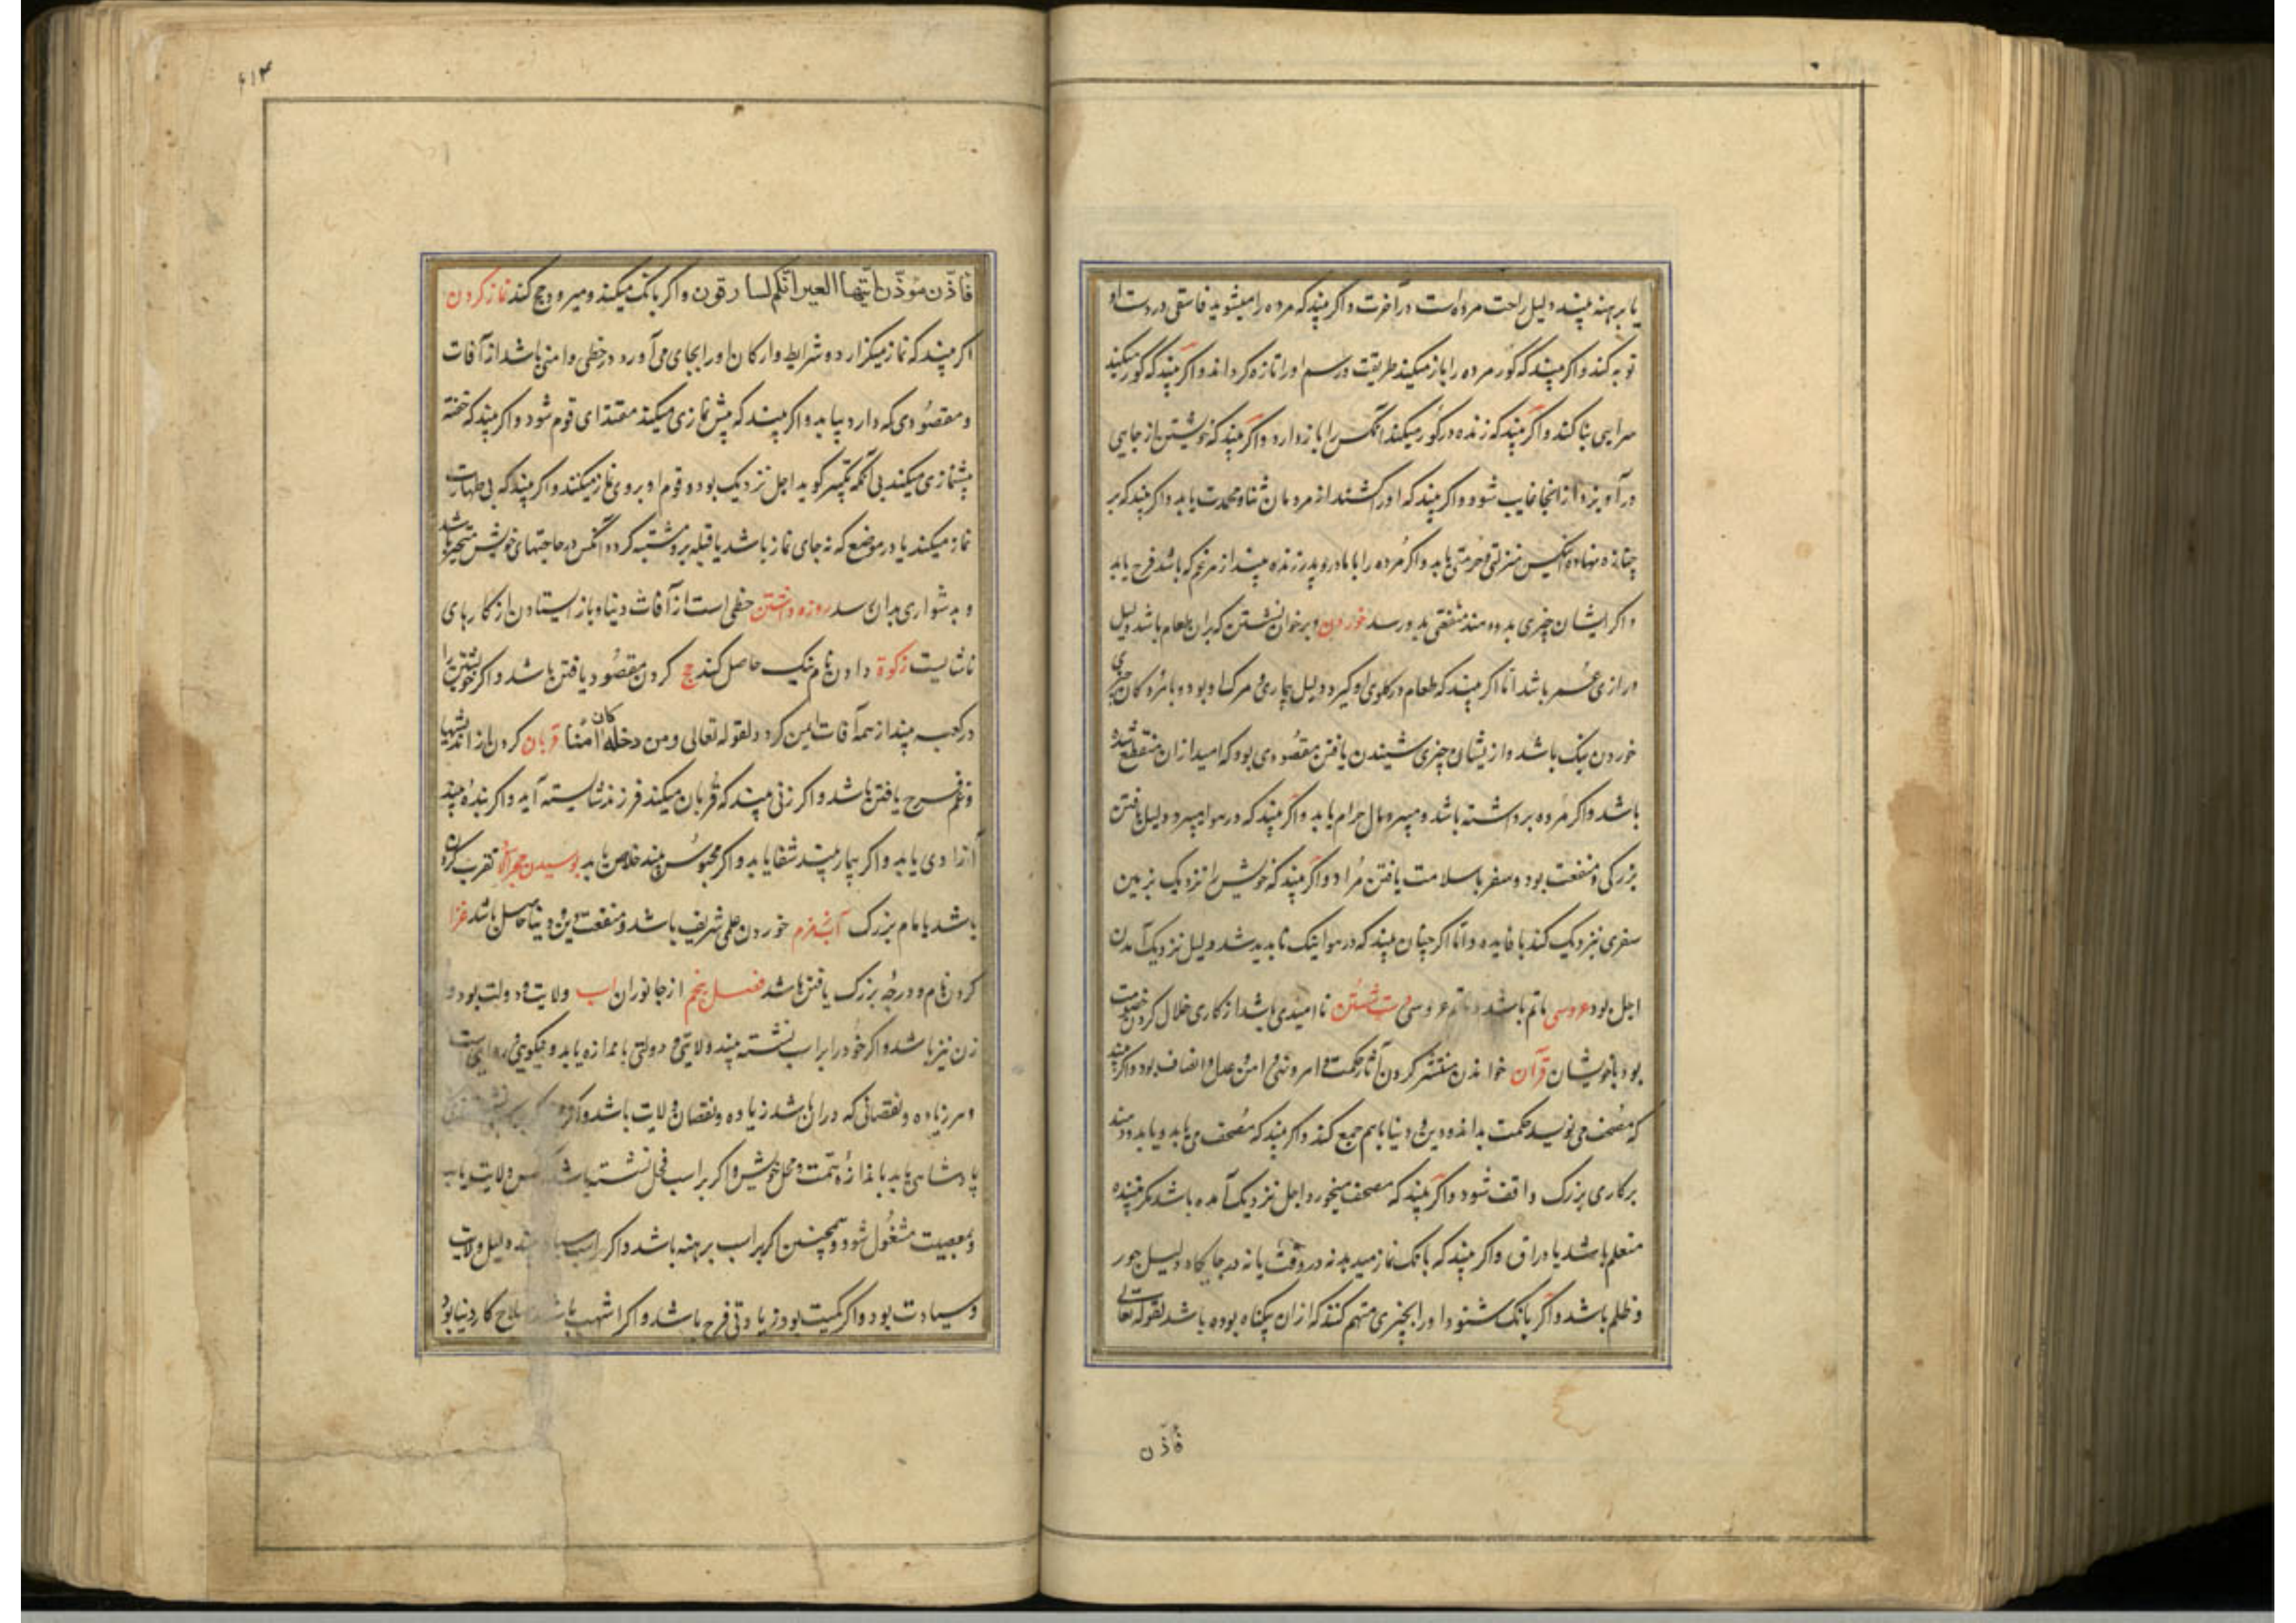 یا برهنه بیند دلیل راحت مرده است در آخرت و اکر بیند که مرده را میشوید فاسقی در دست او
توبه کند و اکر بیند که کور مرده را باز میکند طریقت و رسم او را تازه کرداند و اکر بیند که کور میکند
سرایی بنا کند و اکر بیند که زنده در کور میکنند آنکس را باز دارد و اکر بیند که خویشتن از جایی
در آویزد از انجا غایب شود و اکر بیند که او را کشتند از مردمان ثنا و محمدت یابد و اکر بیند که بر
جنازه نهاده آنکس منزلتی و حرمتی یابد و اکر مرده را با مادر و پدر زنده بیند از هر غم که باشد فرح یابد
و اکر ایشان چیزی بدو دهند منفعتی بدو رسد خوردن و بر خوان نشستن که بران طعام باشد دلیل
درازی عمر باشد اما اکر بیند که طعام در کلوی او کیرد دلیل بیماری و مرک او بود و با مردکان چیزی
خوردن نیک باشد و از یشان چیزی شنیدن یافتن مقصودی بود که امید از ان منقطع شده
باشد و اکر مرده برداشته باشد و میبرد مال حرام یابد و اکر بیند که در هوا میپرد دلیل یافتن
بزرکی و منفعت بود و سفر با سلامت یافتن مراد و اکر بیند که خویش را نزدیک بزمین
سفری نزدیک کند با فایده و اما اکر چنان بیند که در هوا نیک ناپدید شد دلیل نزدیک آمدن
اجل بود عروسی ماتم باشد و ماتم عروسی دست شستن ناامیدی باشد از کاری خلال کردن خصومت
بود با خویشان قرآن خواندن منتشر کردن آثار حکمت و امر و نهی و امن و عدل و انصاف بود و اکر بیند
که مصحف می نویسد حکمت بداند و دین و دنیا باهم جمع کند و اکر بیند که مصحف می یابد و یا بدو دهند
بر کاری بزرک واقف شود و اکر بیند که مصحف میخورد اجل نزدیک آمده باشد مکر بیننده
متعلم باشد یا وراق و اکر بیند که بانک نماز میدهد نه در وقت یا نه در جایکاه دلیل جور
و ظلم باشد و اکر بانک شنود او را بچیزی متهم کنند که از ان بیکناه بوده باشد لقوله تعالی
فاذن
۶۱۳
فاذّن مؤذّن ایّتها العیر انّکم لسارقون و اکر بانک میکند و میرود حج کند نماز کردن
اکر بیند که نماز میکزارد و شرایط و ارکان او را بجای می آورد در حفظی و امنی باشد از آفات
و مقصودی که دارد بیابد و اکر بیند که پیش نمازی میکند مقتدای قوم شود و اکر بیند که خفته
پیشنمازی میکند بی آنکه تکبیر کوید اجل نزدیک بود و قوم او بر وی نماز میکنند و اکر بیند که بی طهارت
نماز میکند یا در موضع که نه جای نماز باشد یا قبله برو مشتبه کردد آنکس در حاجتهای خویش متحیر باشد
و بدشواری بدان رسد روزه داشتن حفظی است از آفات دنیا و باز ایستادن از کارهای
ناشایست زکوة دادن نام نیک حاصل کند حج کردن مقصود یافتن باشد و اکر خویشتن را
در کعبه بیند از همه آفات ایمن کردد لقوله تعالی و من دخله کان آمنا قربان کردن از اندیشها
و غم فرح یافتن باشد و اکر زنی بیند که قربان میکند فرزند شایسته آید و اکر بنده بیند
آزادی یابد و اکر بیمار بیند شفا یابد و اکر محبوس بیند خلاص یابد بوسیدن حجر الاسود تقرب کردن
باشد با امام بزرک آب زمزم خوردن علمی شریف باشد و منفعت دین و دنیا حاصل باشد غزا
کردن نام و درجه بزرک یافتن باشد فصل پنجم از جانوران اسب ولایت و دولت بود و
زن نیز باشد و اکر خود را بر اسب نشسته بیند ولایتی و دولتی باندازه یابد و نیکویی
و هر زیاده و نقصانی که در ان باشد زیاده و نقصان ولایت باشد و اکر
پادشاهی یابد باندازه همت و محل خویش و اکر بر اسب فحل نشسته باشد ولایت یابد
و بمعصیت مشغول شود و همچنین اکر بر اسب برهنه باشد و اکر اسب سیاه بیند دلیل ولایت
و سیادت بود و اکر کمیت بود زیادتی فرح باشد و اکر اشهب باشد صلاح کار دنیا بود